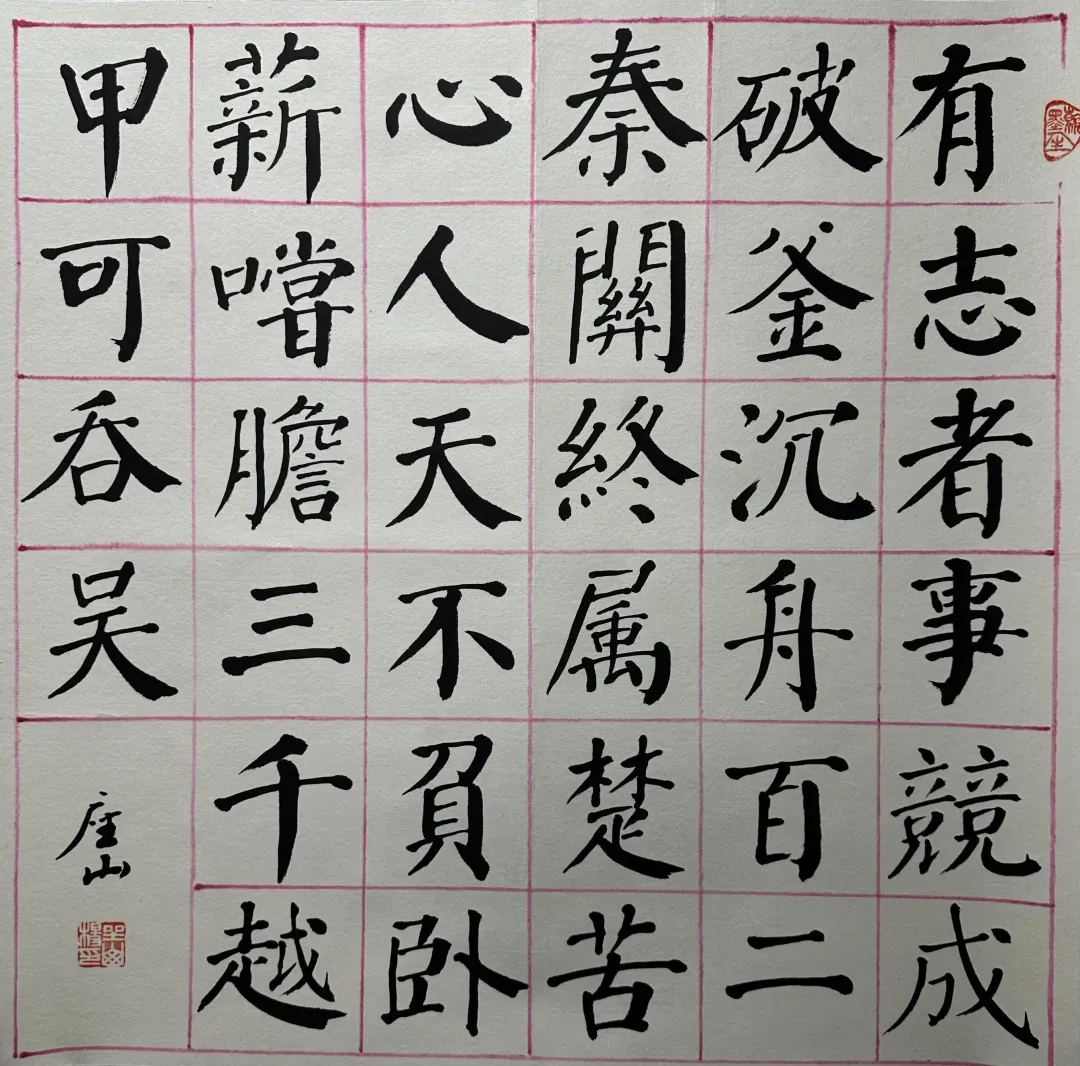 有志者事競成
破釜沉舟百二
秦關終属楚苦
心人天不負卧
薪嚐膽三千越
甲可吞吴